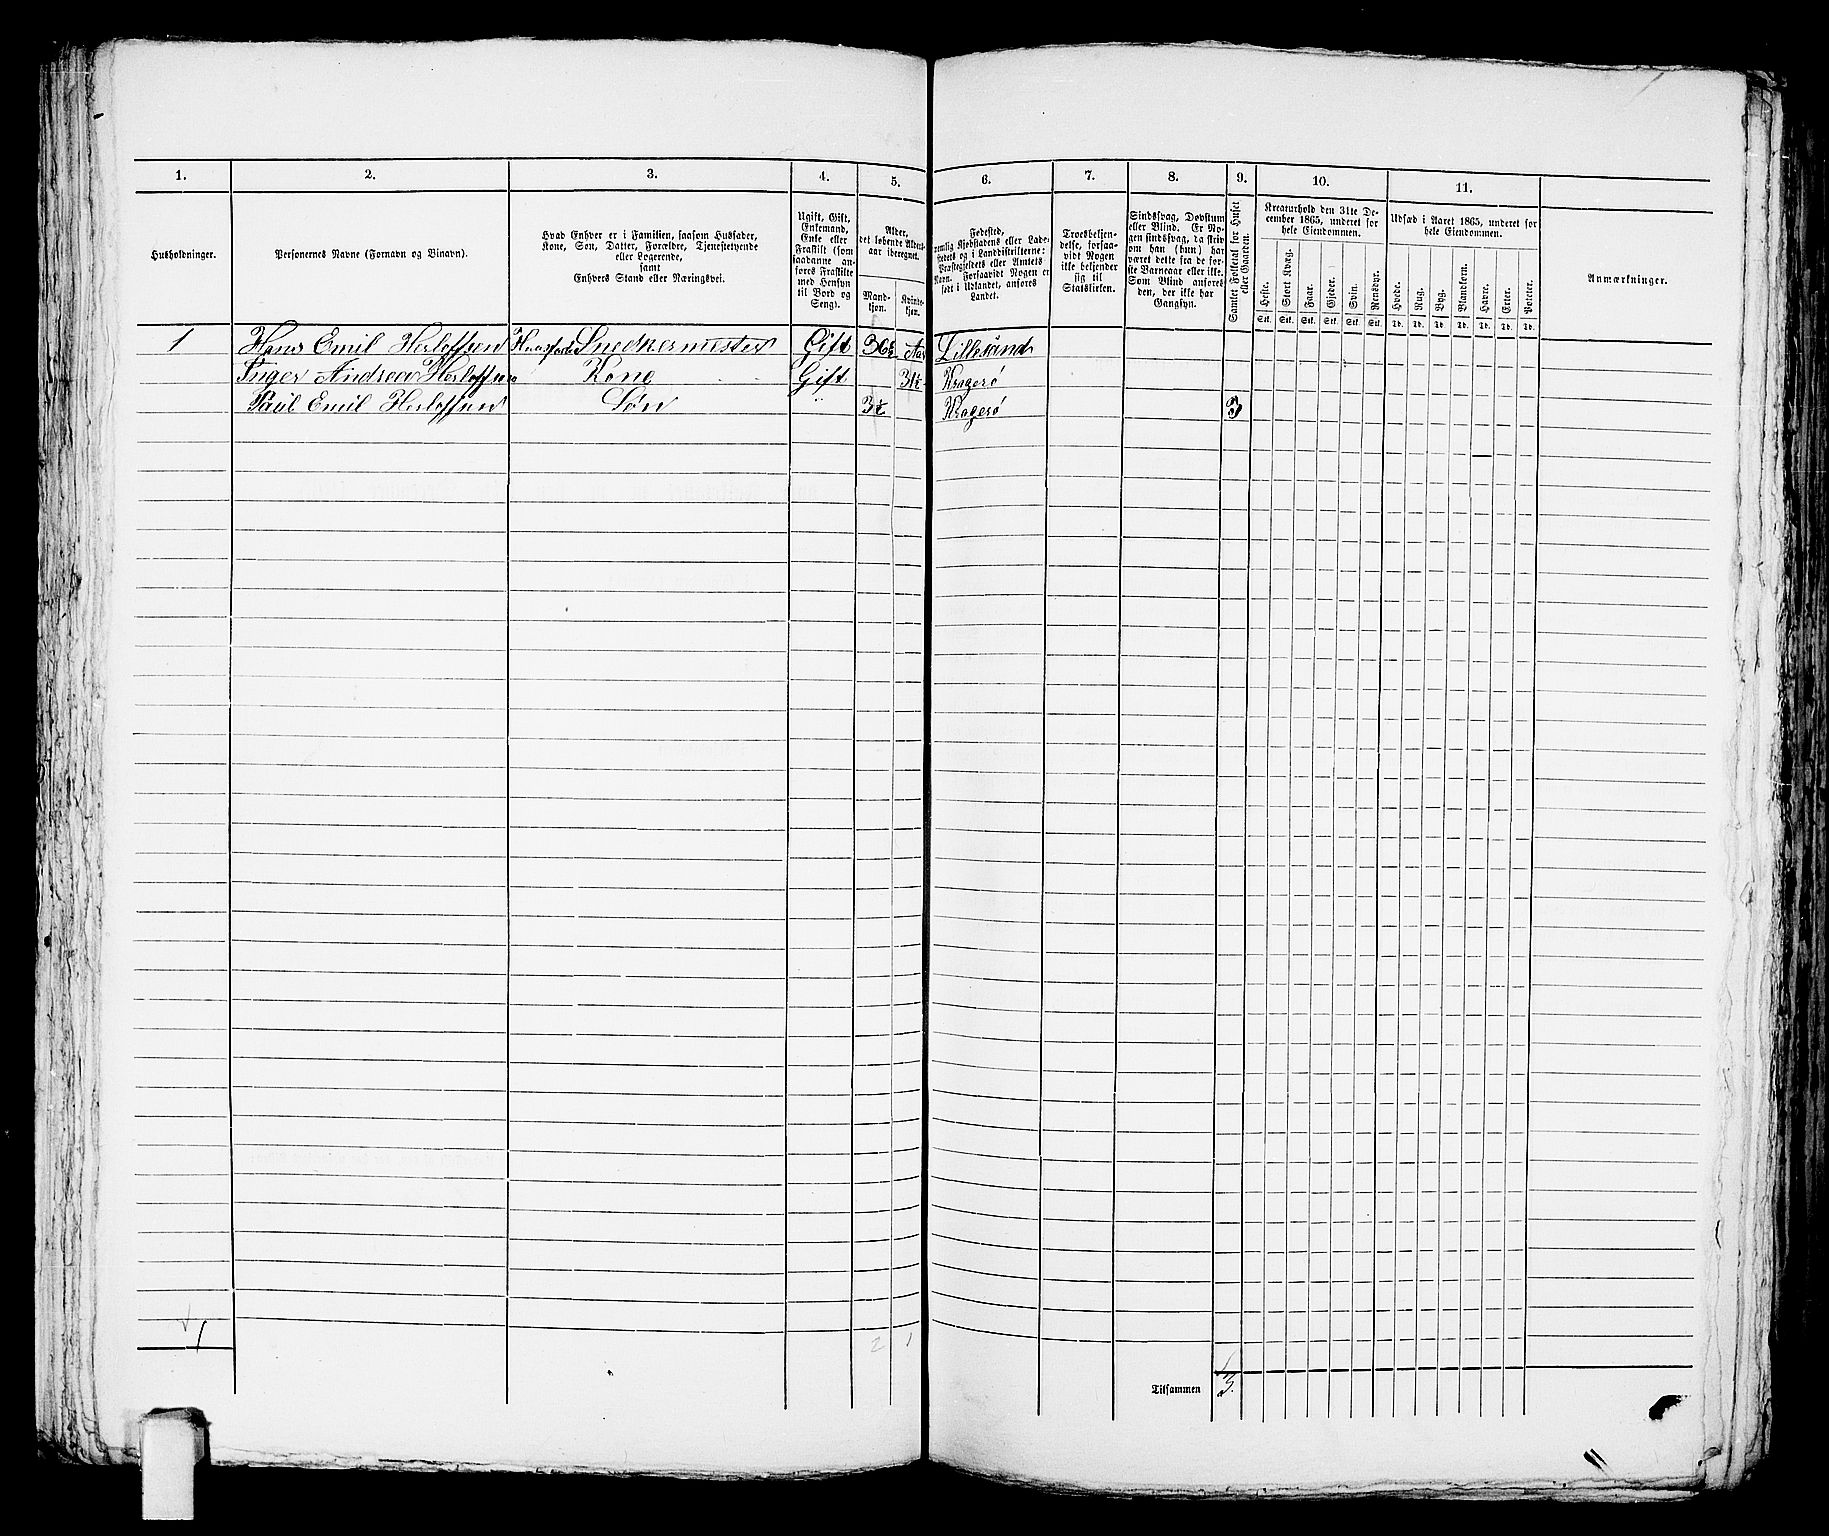 1. 2. 3. 4. 5. 6. 7. 8. 9. 10. 11.
Husholdninger.
Personernes Navne (Fornavn og Binavn).
Hvad Enhver er i Familien, saasom Husfader,
Kone, Søn, Datter, Forældre, Tjenestetyende
eller Logerende,
samt
Enhvers Stand eller Næringsvei.
Ugift, Gift,
Enkemand,
Enke eller
Fraskilt (som
saadanne an-
føres Fraskilte
med Hensyn
til Bord og
Seng).
Alder,
det løbende Alders-
aar iberegnet.
Mand-
kjøn.
Kvinde-
kjøn.
Fødested,
nemlig Kjøbstadens eller Lade-
stedets og i Landdistrikterne:
Præstegjeldets eller Amtets
Navn. Forsaavidt Nogen er
født i Udlandet, anføres
Landet.
Troesbekjen-
delse, forsaa-
vidt Nogen
ikke bekjender
sig til
Statskirken.
Sindssvag, Døvstum
eller Blind. Er No-
gen sindssvag, da skriv
om han (hun) har
været dette fra de før-
ste Barneaar eller ikke.
Som Blind anføres
den, der ikke har
Gangsyn.
Samlet Folketal for Huset
eller Gaarden.
Kreaturhold den 31te De-
cember 1865, underet for
hele Eiendommen.
Heste. Stort Kvæg. Faar. Gjeder. Svin. Rensdyr.
Stk. Stk. Stk. Stk. Stk. Stk.
Udsæd i Aaret 1865, underet for
hele Eiendommen.
Hvede. Rug. Byg. Blandkorn. Havre. Erter. Poteter.
Td. Td. Td. Td. Td. Td. Td.
Anmærkninger.
1 Hans Emil Herloffsen Huusfader Snedkermester Gift 36½ Aar Lillesand
Inger Andrea Herloffsen Kone Gift 31½ Kragerø
Paul Emil Herloffsen Søn " 3½ Kragerø 3
1
2 1
Tilsammen 3.